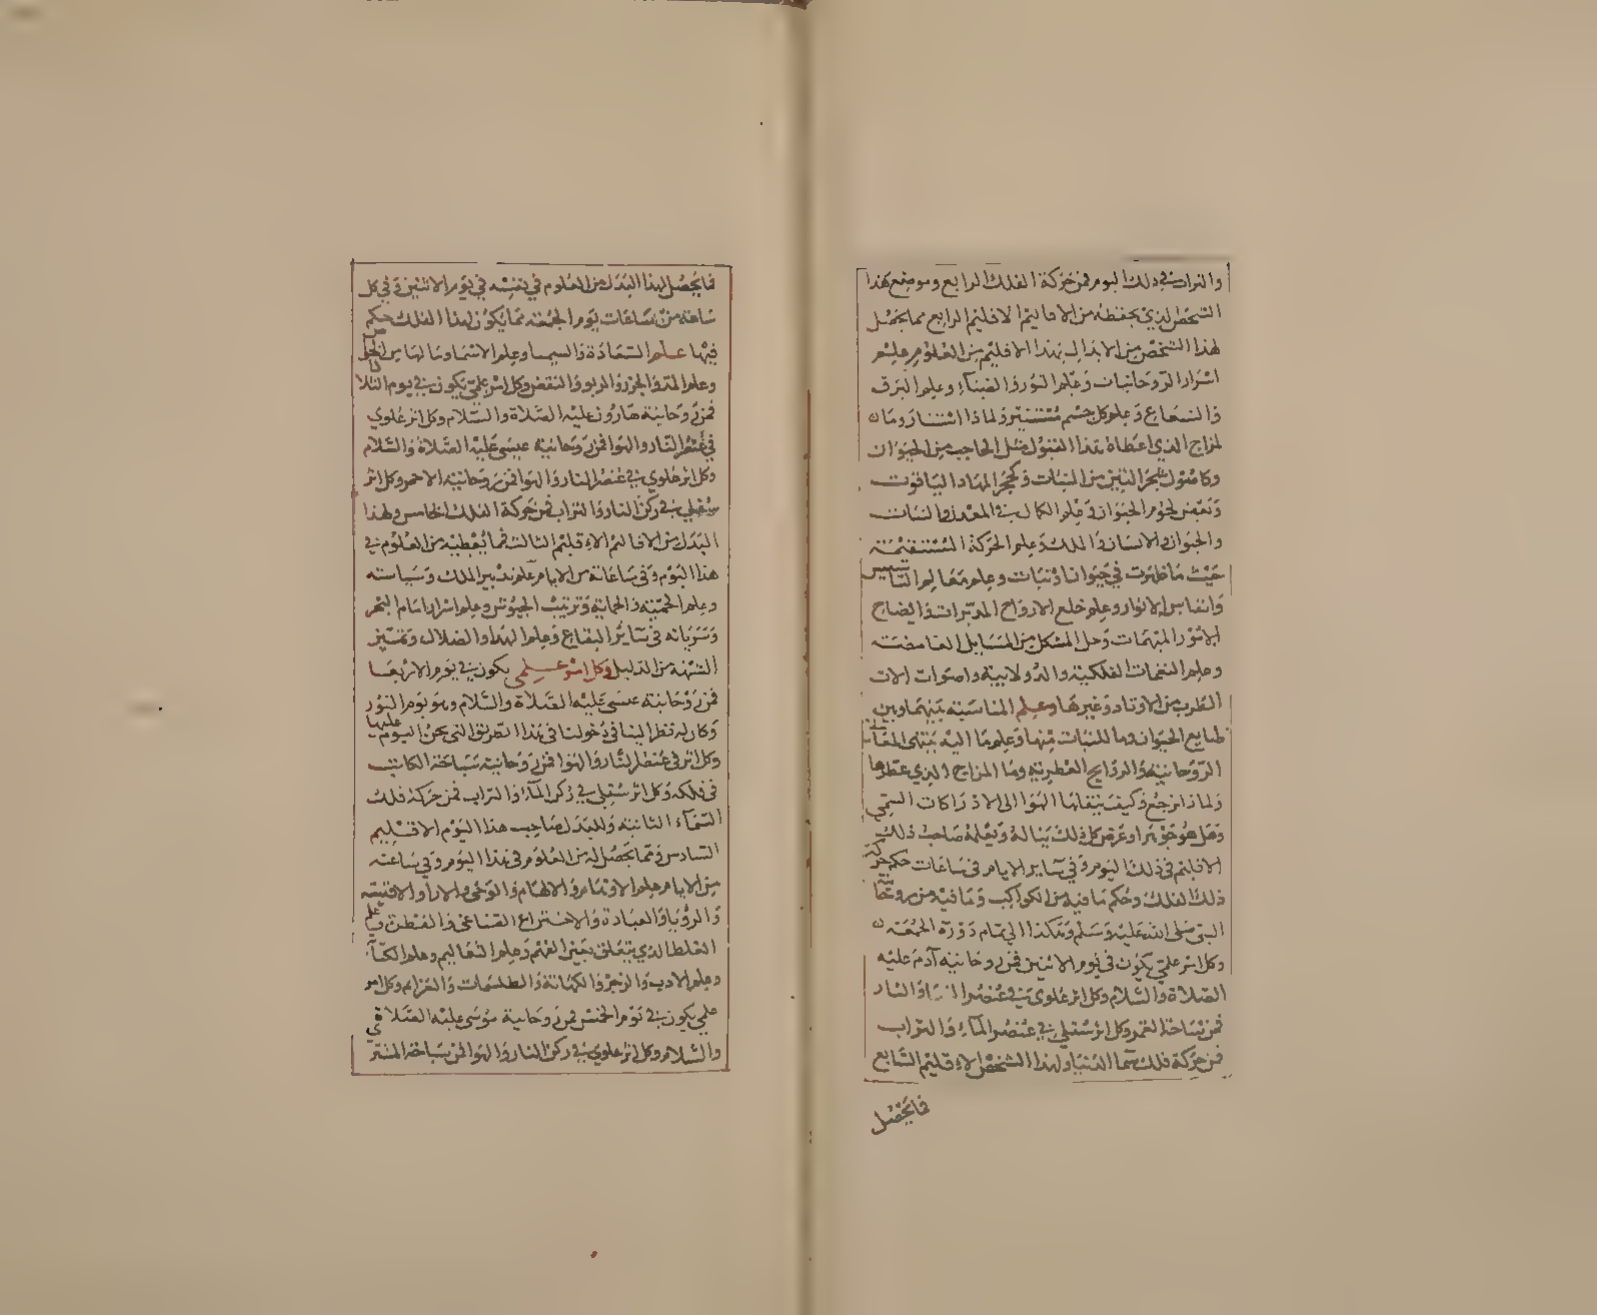 والتراب في ذلك اليوم فمن حركة الفلك الرابع وموضع هذا
الشخص الذي يحفظه من الاقاليم الاقليم الرابع مما يحصل
لهذا الشخص من الابدال بهذا الاقليم من العلوم علم
اسرار الروحانيات وعلم النور والضياء وعلم البرق
والشعاع وعلم كل جسم مستنير ولماذا استنار وما
المزاج الذي اعطاه هذا القبول مثل الحباحب من الحيوان
وكاصول شجر التين من النبات وكحجر المها والياقوت
وبعض لحوم الحيوان وعلم الكمال في المعدن والنبات
والحيوان والانسان والملك وعلم الحركة المستقيمة
حيث ما ظهرت في حيوان او نبات وعلم معالم التاسيس
وانفاس الانوار وعلم خلع الارواح المدبرات وايضاح
الامور المبهمات وحل المشكل من المسايل الغامضة
وعلم النغمات الفلكية والدولابية واصوات الات
الطرب من الاوتاد وغيرها وعلم المناسبة بينها وبين
طبايع الحيوان وما للنبات منها وعلم ما اليه ينتهي المعاني
الروحانية والروايح العطرية وما المزاج الذي عطرها
ولماذا ترجع وكيف ينقلها الهوا الى الادراكات الشمي
وهل هو جوهر او عرض كل ذلك يناله ويعلمه صاحب ذلك
الاقليم في ذلك اليوم وفي ساير الايام في ساعات حكم حركة
ذلك الفلك وحكم ما فيه من الكواكب وما فيه من روحانية
النبي صلى الله عليه وسلم وهكذا الى تمام دورة الجمعة
وكل امر علمي يكون في يوم الاثنين فمن روحانية آدم عليه
الصلاة والسلام وكل اثر علوي في عنصر الهوا والنار
فمن سباحة القمر وكل اثر سفلي في عنصر الماء والتراب
فمن حركة فلك سما الدنيا ولهذا الشخص الاقليم السابع
فما يحصل
فما يحصل لهذا البدل من العلوم في نفسه في يوم الاثنين وفي كل
ساعة من ساعات يوم الجمعة مما يكون لهذا الفلك حكم
فيها علم السعادة والسيما وعلم الاسما وما لها من الخواص
وعلم المد والجزر والربو والنقض وكل امر علمي يكون في يوم الثلاثا
فمن روحانية هارون عليه الصلاة والسلام وكل اثر علوي
في عنصر النار والهوا فمن روحانية عيسى عليه الصلاة والسلام
وكل اثر علوي في عنصر النار والهوا فمن روحانية الاحمر وكل اثر
سفلي في ركن النار والتراب فمن حركة الفلك الخامس ولهذا
البدل من الاقاليم الاقليم الثالث فما يعطيه من العلوم في
هذا اليوم وفي ساعاته من الايام علم تدبير الملك وسياسته
وعلم الحمية والحماية وترتيب الجيوش وعلم اسرار
وسريانه في سائر البقاع وعلم الهدا والضلال وتمييز
الشبهة من الدليل وكل امر علمي يكون في يوم الاربعا
فمن روحانية عيسى عليه الصلاة والسلام وهو يوم النور
وكان له نظر الينا في دخولنا في هذا الطريق التي نحن اليوم عليها
وكل اثر في عنصر النار والهوا فمن روحانية سباحة الكاتب
في فلكه وكل اثر سفلي في ركن الماء والتراب فمن حركة فلك
السماء الثانية وللبدل صاحب هذا اليوم الاقليم
السادس ومما يحصل له من العلوم في هذا اليوم وفي ساعته
من الايام علم الاوهام والالهام والوحي والارا والاقيسة
والرؤيا والعبادة والاختراع الصناعي والفطن وعلم
الغلط الذي يتعلق بعين الفهم وعلم التعاليم وعلم الكتابة
وعلم الادب والزجر والكهانة والطلسمات والعزايم وكل امر
علمي يكون في يوم الخميس فمن روحانية موسى عليه الصلاة
والسلام وكل اثر علوي في ركن النار والهوا فمن سباحة المشتري